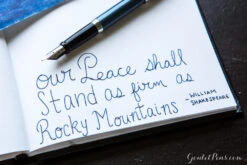 our Peace shall
Stand as firm as
Rocky Mountains
-WILLIAM
SHAKESPEARE
GouletPens.com